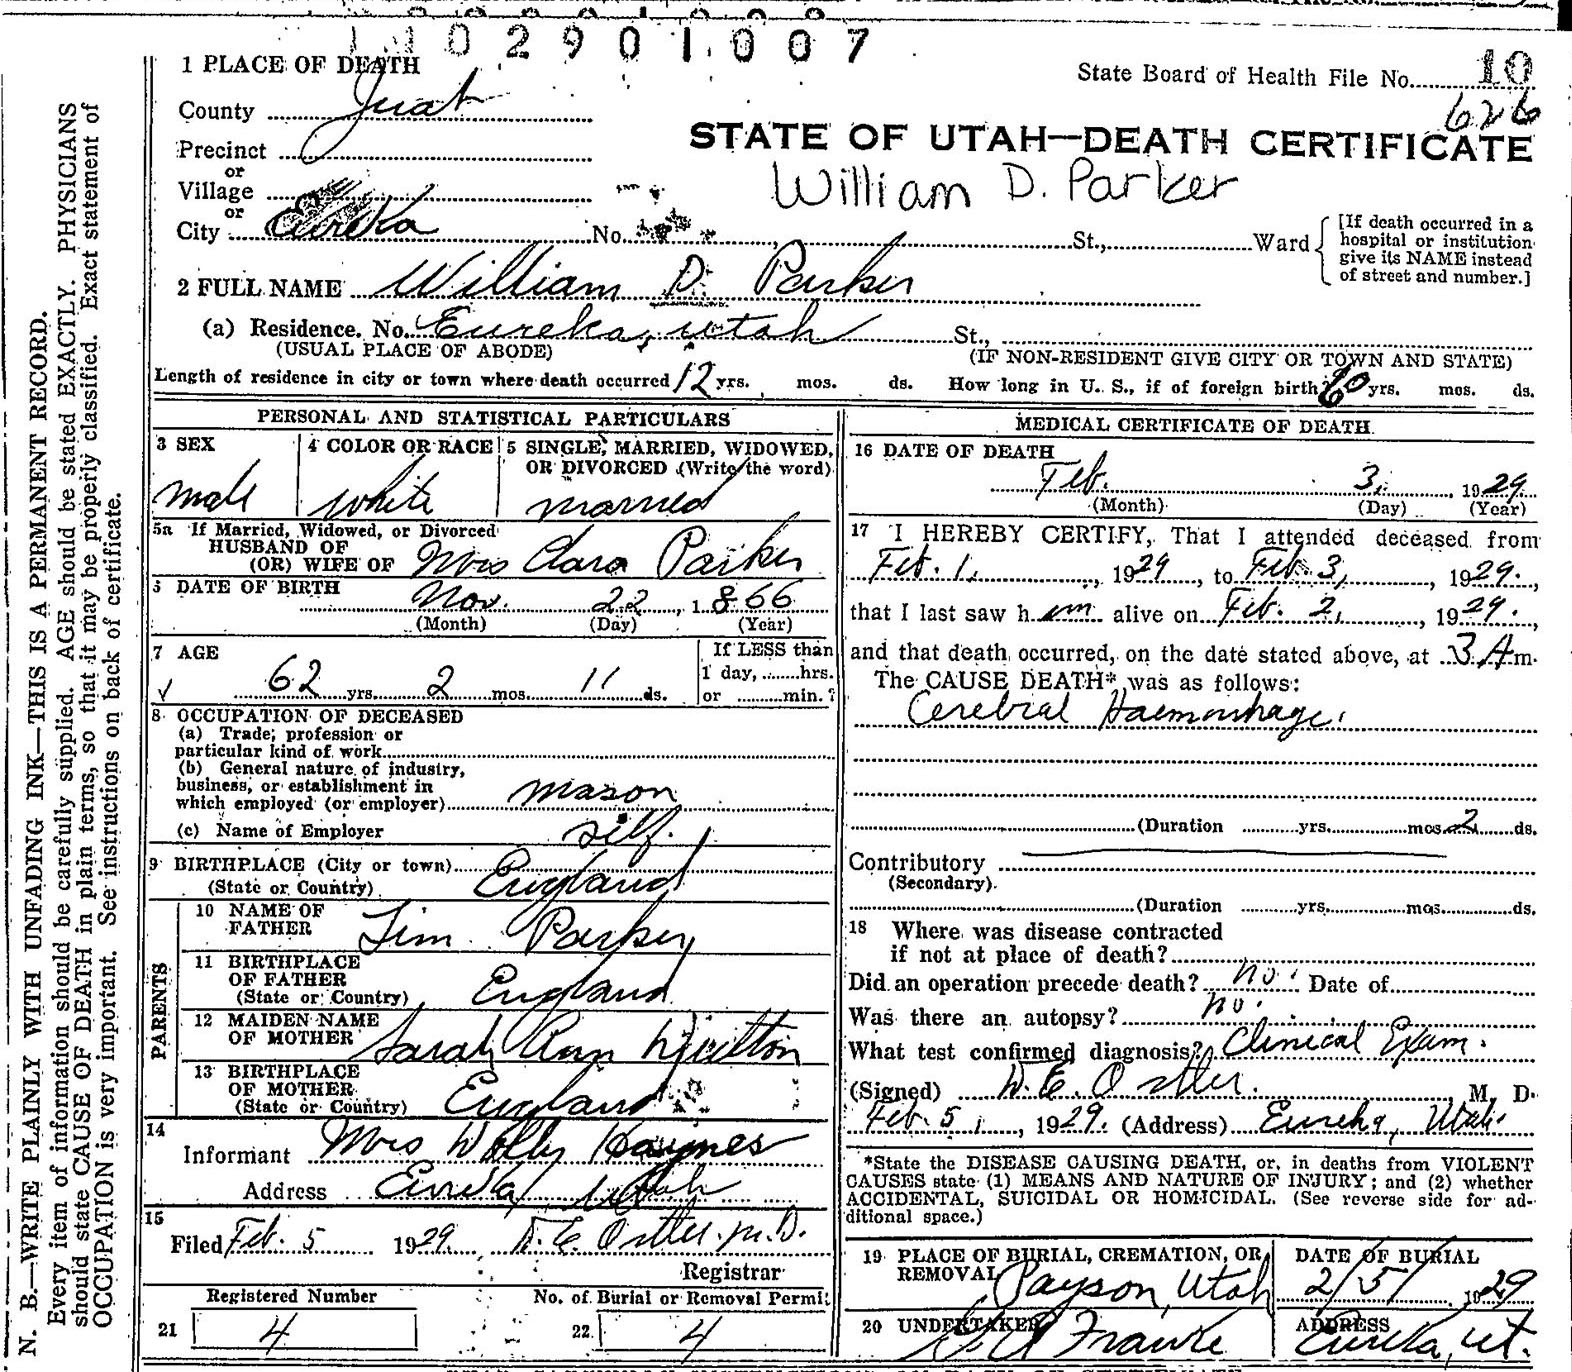 1 1 0 2 9 0 1 0 0 7
1 PLACE OF DEATH
State Board of Health File No. 10
626
County Juab
STATE OF UTAH—DEATH CERTIFICATE
Precinct
or
Village
William D. Parker
or
City Eureka No. St., Ward
[If death occurred in a
hospital or institution
give its NAME instead
of street and number.]
2 FULL NAME William D. Parker
(a) Residence. No. Eureka, Utah St.,
(USUAL PLACE OF ABODE) (IF NON-RESIDENT GIVE CITY OR TOWN AND STATE)
Length of residence in city or town where death occurred 12 yrs. mos. ds. How long in U. S., if of foreign birth? 60 yrs. mos. ds.
PERSONAL AND STATISTICAL PARTICULARS
3 SEX 4 COLOR OR RACE 5 SINGLE, MARRIED, WIDOWED,
OR DIVORCED (Write the word)
male white married
5a If Married, Widowed, or Divorced
HUSBAND OF
(OR) WIFE OF Mrs Clara Parker
6 DATE OF BIRTH
Nov. 22, 1866
(Month) (Day) (Year)
7 AGE If LESS than
62 yrs. 2 mos. 11 ds. 1 day, hrs.
or min.?
8 OCCUPATION OF DECEASED
(a) Trade, profession or
particular kind of work
(b) General nature of industry,
business, or establishment in
which employed (or employer) mason
(c) Name of Employer self.
9 BIRTHPLACE (City or town)
(State or Country) England
PARENTS
10 NAME OF
FATHER Jim Parker
11 BIRTHPLACE
OF FATHER
(State or Country) England
12 MAIDEN NAME
OF MOTHER Sarah Ann
13 BIRTHPLACE
OF MOTHER
(State or Country) England
14
Informant Mrs Haynes
Address Eureka, Utah
15
Filed Feb. 5 1929 D. E. Ostler. M.D.
Registrar
Registered Number No. of Burial or Removal Permit
21 4 22 4
MEDICAL CERTIFICATE OF DEATH
16 DATE OF DEATH
Feb. 3, 1929
(Month) (Day) (Year)
17 I HEREBY CERTIFY, That I attended deceased from
Feb. 1, 1929, to Feb. 3, 1929.,
that I last saw him alive on Feb. 2, 1929.,
and that death occurred, on the date stated above, at 3 A m.
The CAUSE DEATH* was as follows:
Cerebral Haemorrhage.
(Duration yrs. mos. 2 ds.
Contributory
(Secondary).
(Duration yrs. mos. ds.
18 Where was disease contracted
if not at place of death?
Did an operation precede death? no. Date of
Was there an autopsy? no.
What test confirmed diagnosis? Clinical Exam.
(Signed) D. E. Ostler. M. D.
Feb. 5, 1929. (Address) Eureka, Utah.
*State the DISEASE CAUSING DEATH, or, in deaths from VIOLENT
CAUSES state (1) MEANS AND NATURE OF INJURY; and (2) whether
ACCIDENTAL, SUICIDAL OR HOMICIDAL. (See reverse side for ad-
ditional space.)
19 PLACE OF BURIAL, CREMATION, OR DATE OF BURIAL
REMOVAL Payson, Utah 2/5/ 1929
20 UNDERTAKER ADDRESS
Franke Eureka, Ut.
N. B.—WRITE PLAINLY WITH UNFADING INK—THIS IS A PERMANENT RECORD.
Every item of information should be carefully supplied. AGE should be stated EXACTLY. PHYSICIANS
should state CAUSE OF DEATH in plain terms, so that it may be properly classified. Exact statement of
OCCUPATION is very important. See instructions on back of certificate.